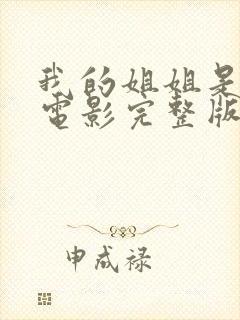 我的姐姐是
电影完整版
申成禄